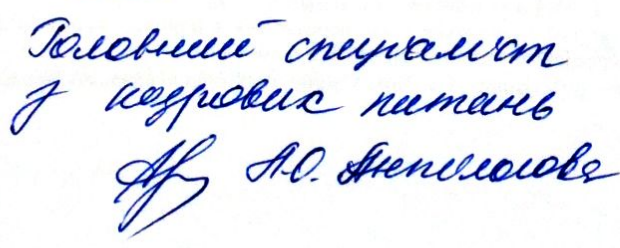 Головний спеціаліст
з кадрових питань
А.О. Анпілогова